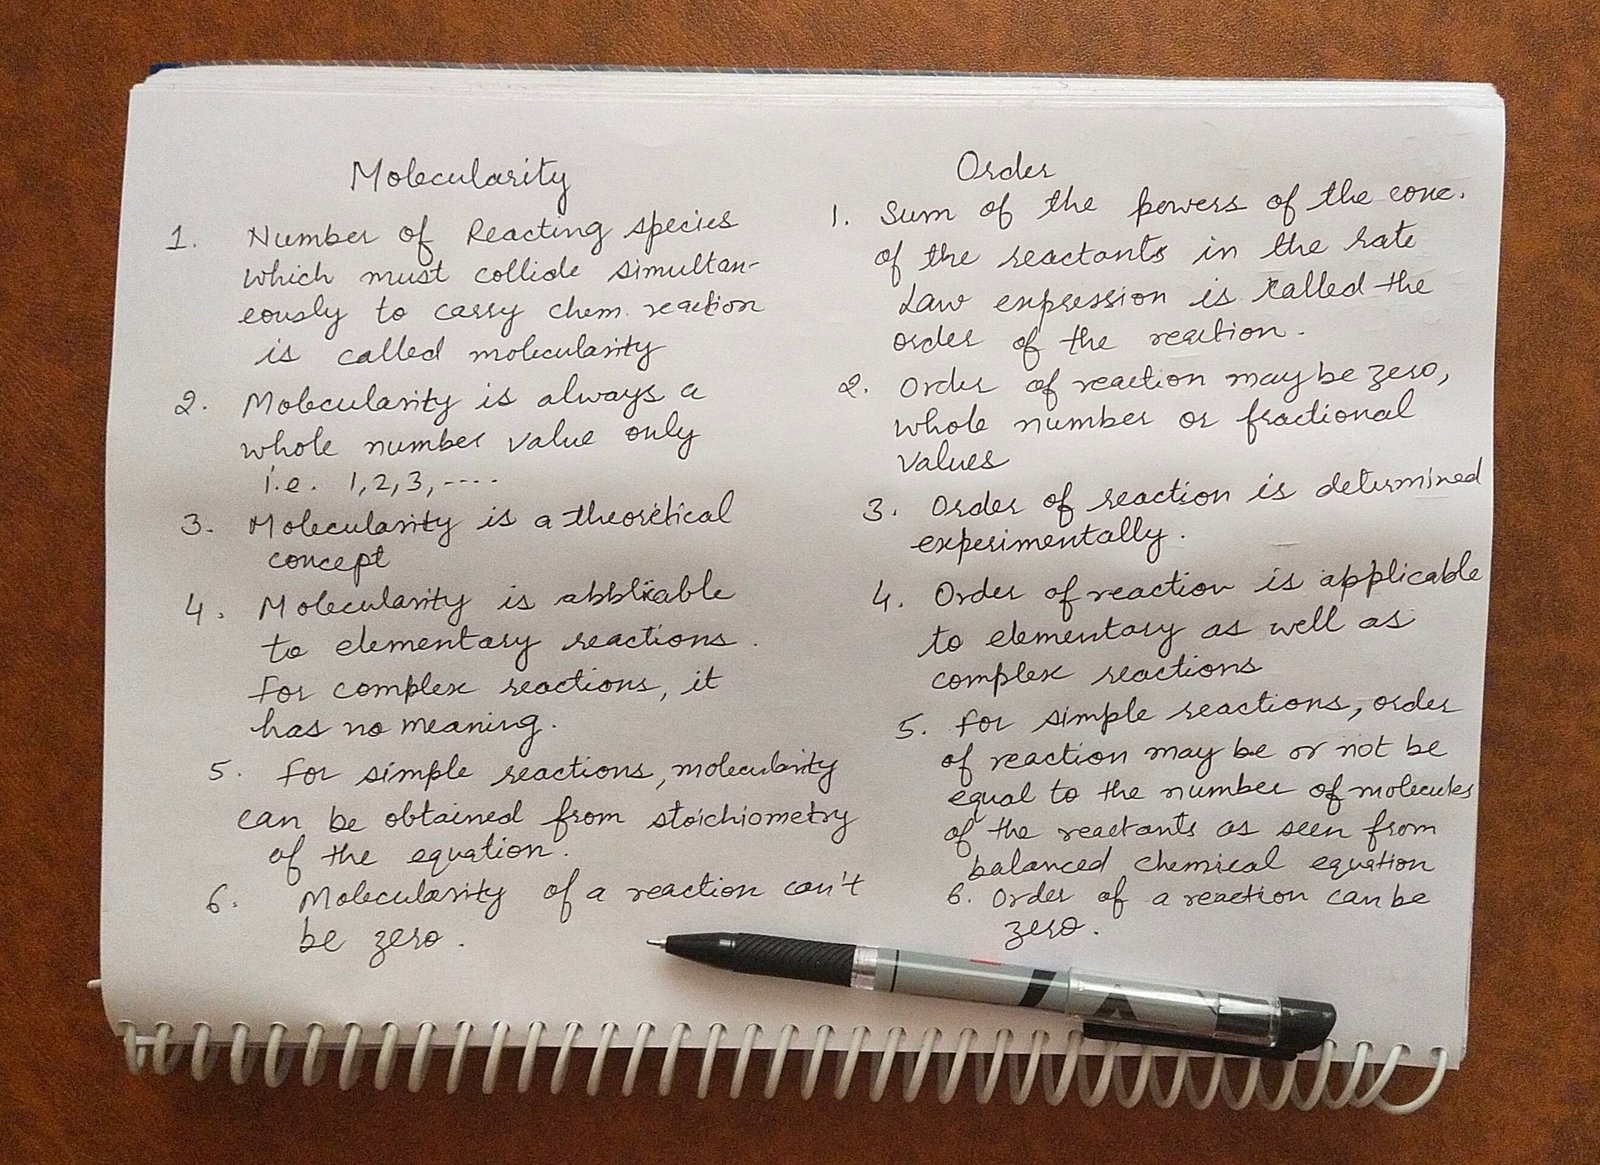 Molecularity
1. Number of Reacting species
which must collide simultan-
eously to carry chem. reaction
is called molecularity
2. Molecularity is always a
whole number value only
i.e. 1,2,3,----
3. Molecularity is a theoretical
concept
4. Molecularity is applicable
to elementary reactions.
for complex reactions, it
has no meaning.
5. for simple reactions, molecularity
can be obtained from stoichiometry
of the equation.
6. Molecularity of a reaction can't
be zero.
Order
1. Sum of the powers of the conc.
of the reactants in the rate
Law expression is called the
order of the reaction.
2. Order of reaction may be zero,
whole number or fractional
values
3. Order of reaction is determined
experimentally.
4. Order of reaction is applicable
to elementary as well as
complex reactions
5. for simple reactions, order
of reaction may be or not be
equal to the number of molecules
of the reactants as seen from
balanced chemical equation
6. Order of a reaction can be
zero.